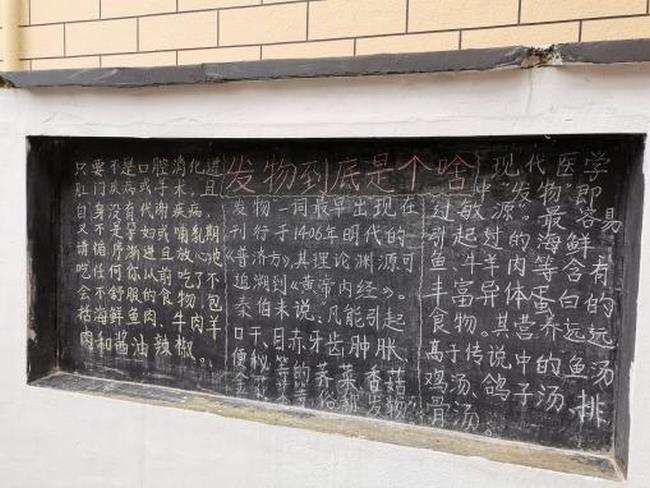 发物到底是个啥
只要不是口腔消化道
肛门疾病或手术。且
自身没有代谢疾病,
又不是孕妇或哺乳期
请循序渐进且放心地
吃任何你从前吃了不
会不舒服的食物包
括海鲜鱼肉、牛肉羊
肉和酱油辣椒。
发物一词最早出现在
刊行于1406年明代的
《普济方》,其理论渊源可
追溯到《黄帝内经》。
秦伯未说、凡能引起
口干、目赤、牙齿肿胀、
便秘等的芥菜、香菇
等俗称发物
现代医学
中"发物"即
过敏源。最容易
引起过敏的海鲜
鱼、牛羊肉等含有
丰富异体蛋白的
食物。其营养远远
高于传说中的鱼汤
鸡子汤、鸽子汤、排
骨汤。